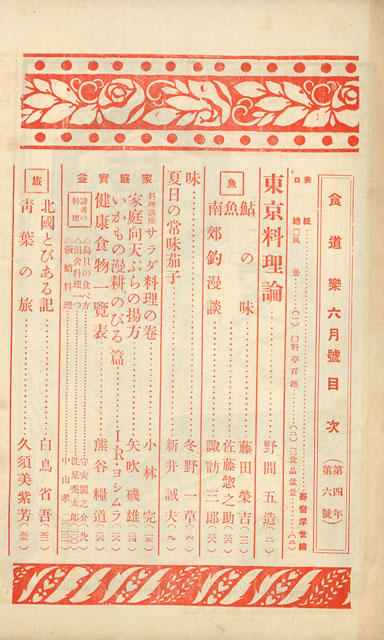 食道樂六月號目次
第四年
第六號
表紙
口繪
東京料理論 野間五造
魚
鮎の味 藤田榮吉
魚 佐藤惣之助
南郊釣漫談 諏訪三郎
味 冬野一草
夏日の常味茄子 新井誠夫
家庭實益
料理講座 サラダ料理の巻 小林完
家庭向天ぷらの揚方 矢吹磯雄
いかもの漫耕「のびる」篇 IRヨシムラ
健康食物一覽表 熊谷糧道
讀者の料理
△鳥貝の食べ方
△田舍料理一つ
中山孝二
旅
北國とびある記 白鳥省吾
青葉の旅 久須美紫芳